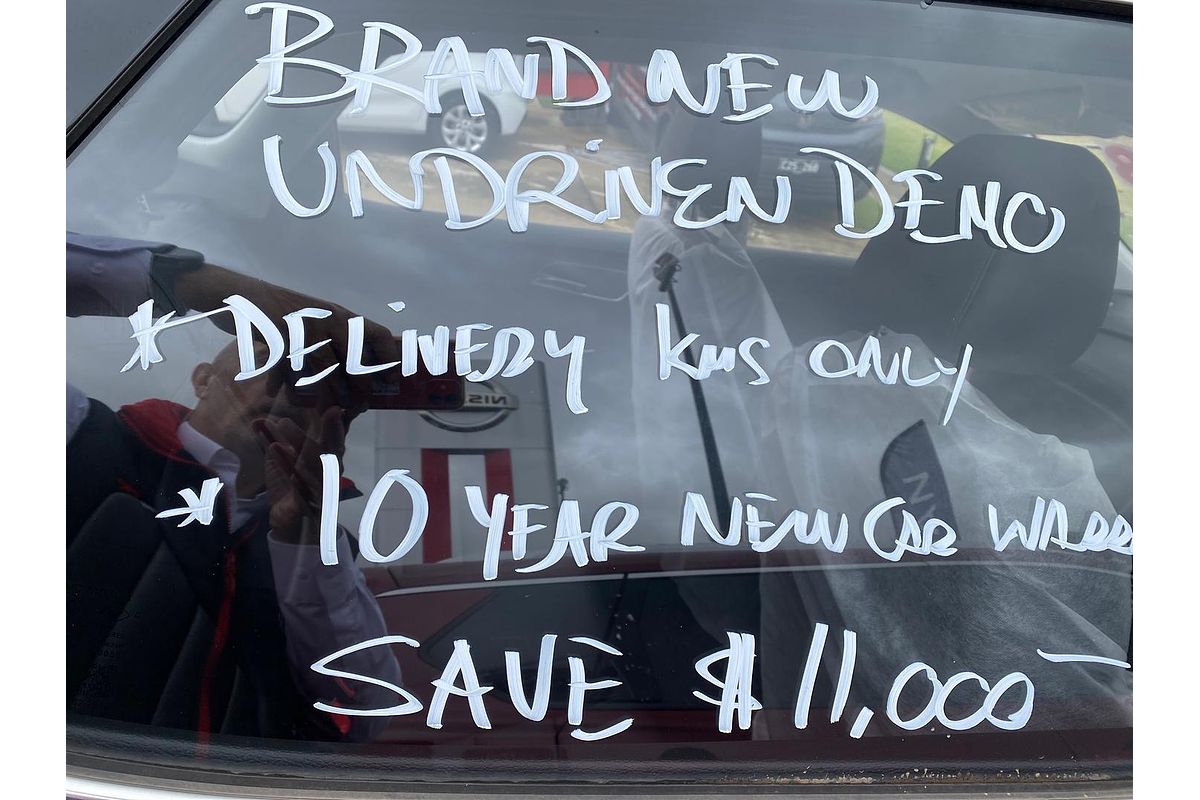 BRAND NEW
UNDRIVEN DEMO
* DELIVERY KMS ONLY
* 10 YEAR NEW CAR WARR
SAVE $11,000